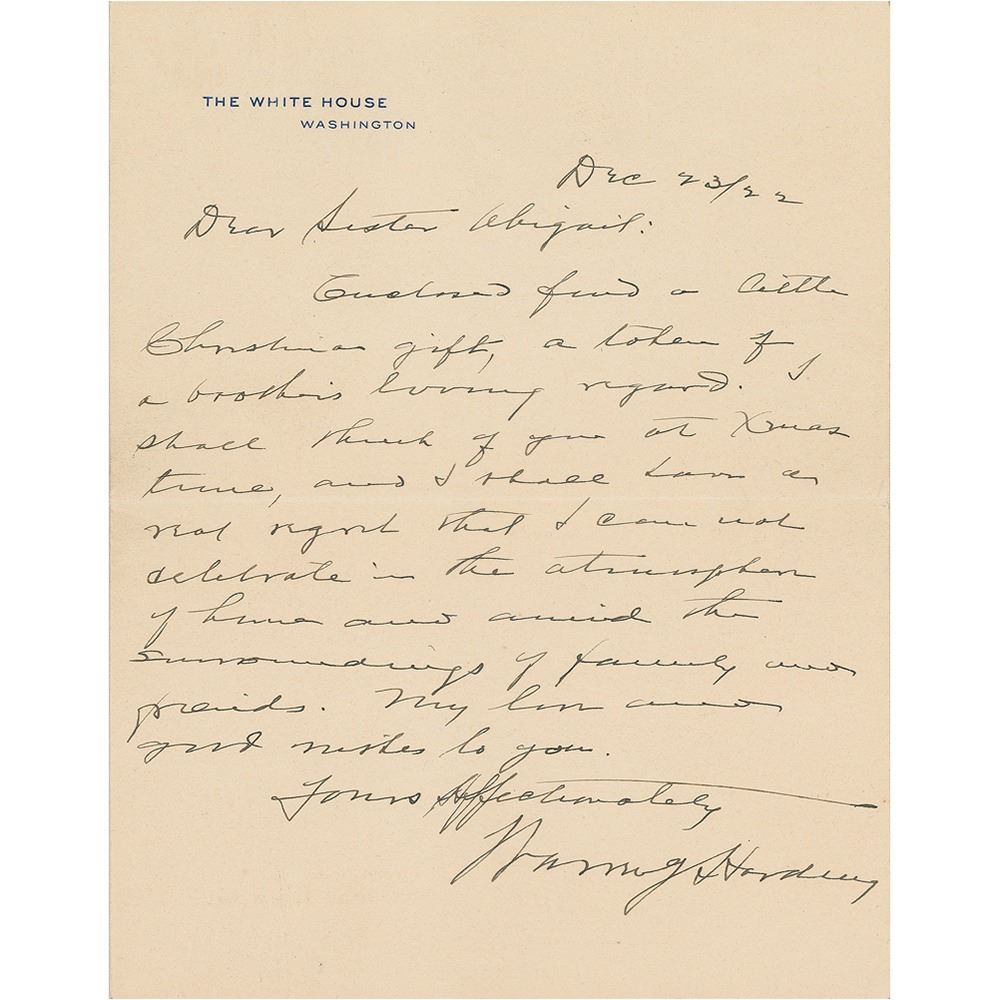 THE WHITE HOUSE
WASHINGTON
Dec 23/22
Dear Sister Abigail:
Enclosed find a little
Christmas gift, a token of
a brother's loving regard. I
shall think of you at Xmas
time, and I shall have a
real regret that I can not
celebrate in the atmosphere
of home and amid the
surroundings of family and
friends. My love and
good wishes to you.
Yours Affectionately
Warren G Harding